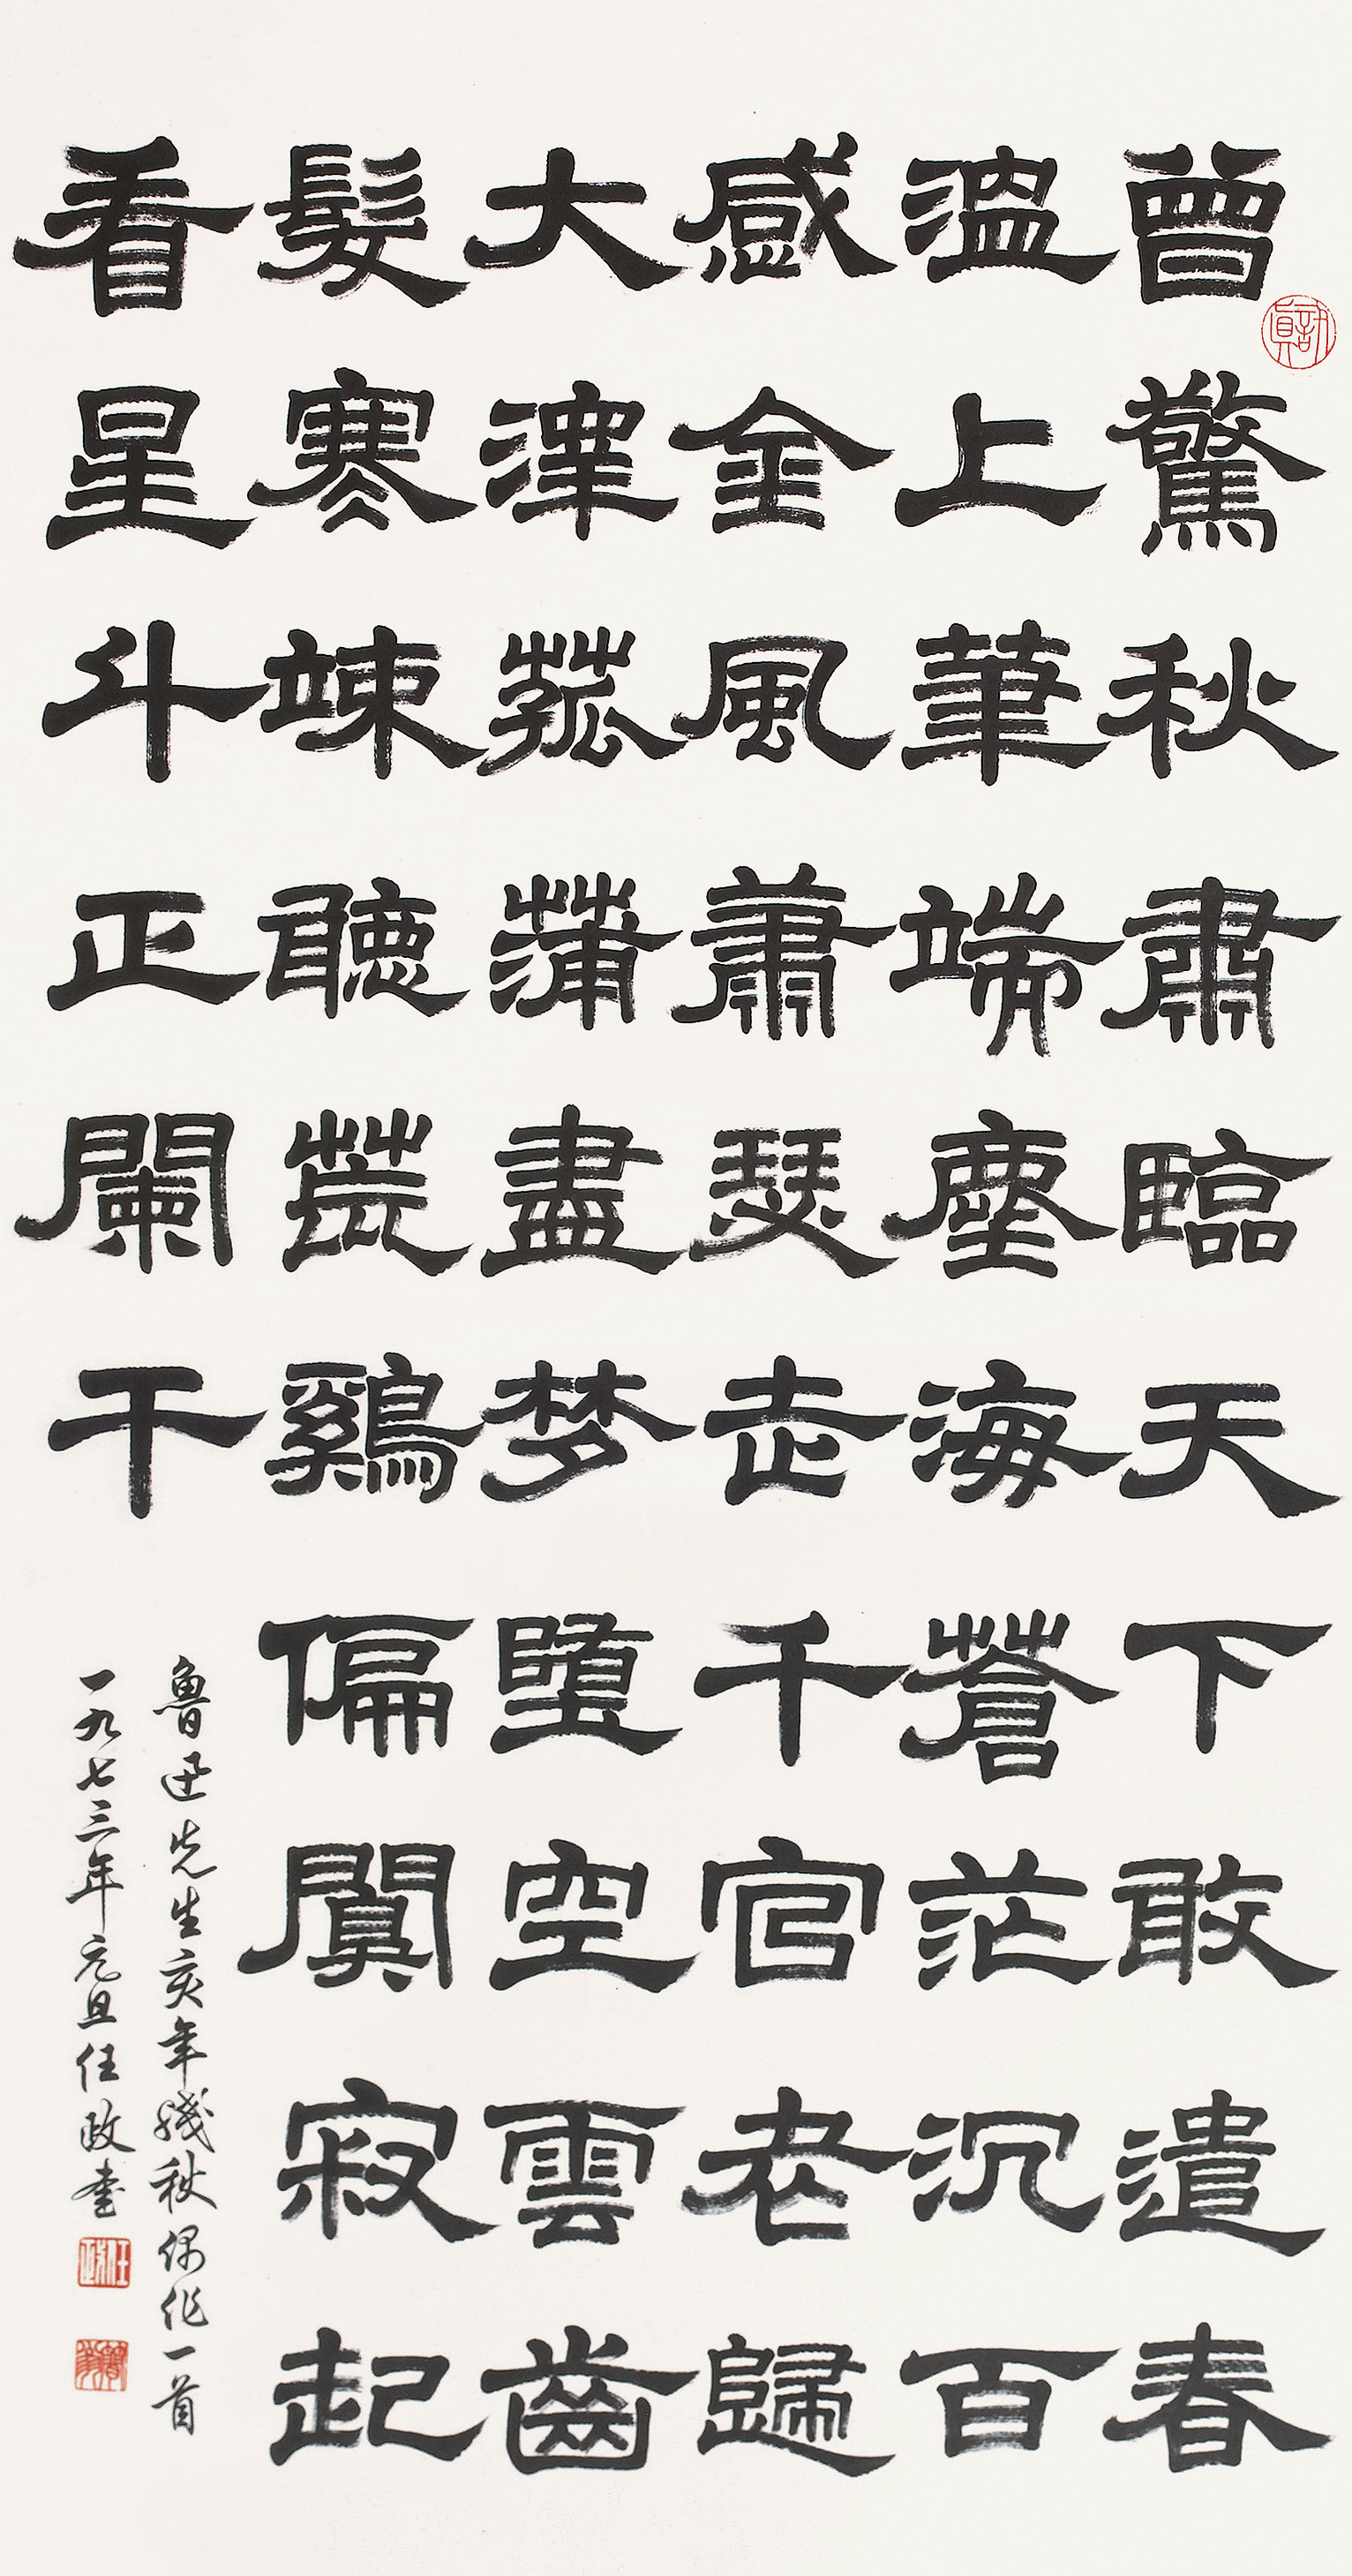 曾驚秋肅臨天下敢遣春
溫上筆端塵海蒼茫沉百
感金風蕭瑟走千官老歸
大澤菰蒲盡梦墜空雲齒
髮寒竦聽荒鷄偏闃寂起
看星斗正闌干
魯迅先生亥年殘秋偶作一首
一九七三年元旦任政書
任政